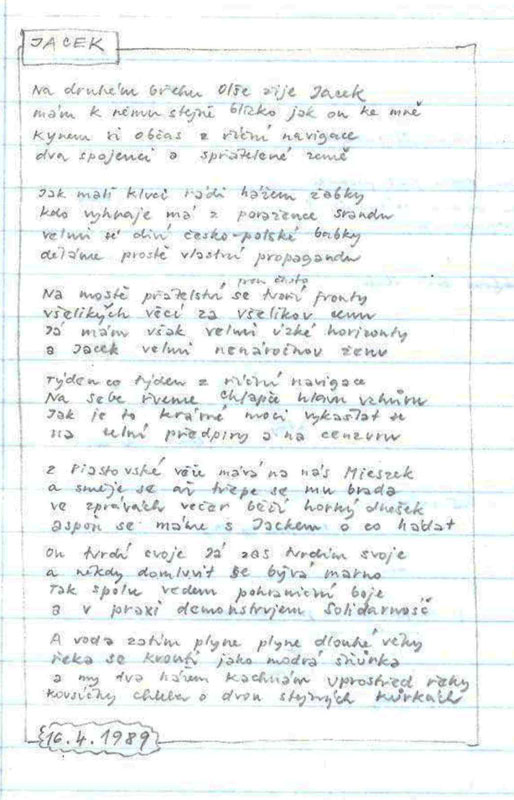 JACEK
Na druhém břehu Olše žije Jacek
mám k němu stejně blízko jak on ke mně
kynem si občas z říční navigace
dva spojenci a spřátelené země
Jak malí kluci rádi házem žabky
kdo vyhraje má z poražence srandu
velmi se diví česko-polské babky
děláme prostě vlastní propagandu
prou čisto
Na mostě přátelství se tvoří fronty
všelikých věcí za všelikou cenu
Já mám však velmi úzké horizonty
a Jacek velmi nenáročnou ženu
Týden co týden z říční navigace
Na sebe řveme chlapče hlavu vzhůru
Jak je to krásné moci vykašlat se
na celní předpisy a na cenzuru
z Piastovské věže mává na nás Mieszek
a směje se až třepe se mu brada
ve zprávách večer běží horký dnešek
aspoň se máme s Jackem o co hádat
on tvrdí svoje Já zas tvrdím svoje
a někdy domluvit se bývá marno
Tak spolu vedem pohraniční boje
a v praxi demonstrujem Solidarność
A voda zatím plyne plyne dlouhé věky
řeka se kroutí jako modrá šňůrka
a my dva házem kachnám uprostřed řeky
kousíčky chleba o dvou stejných kůrkách
16.4.1989